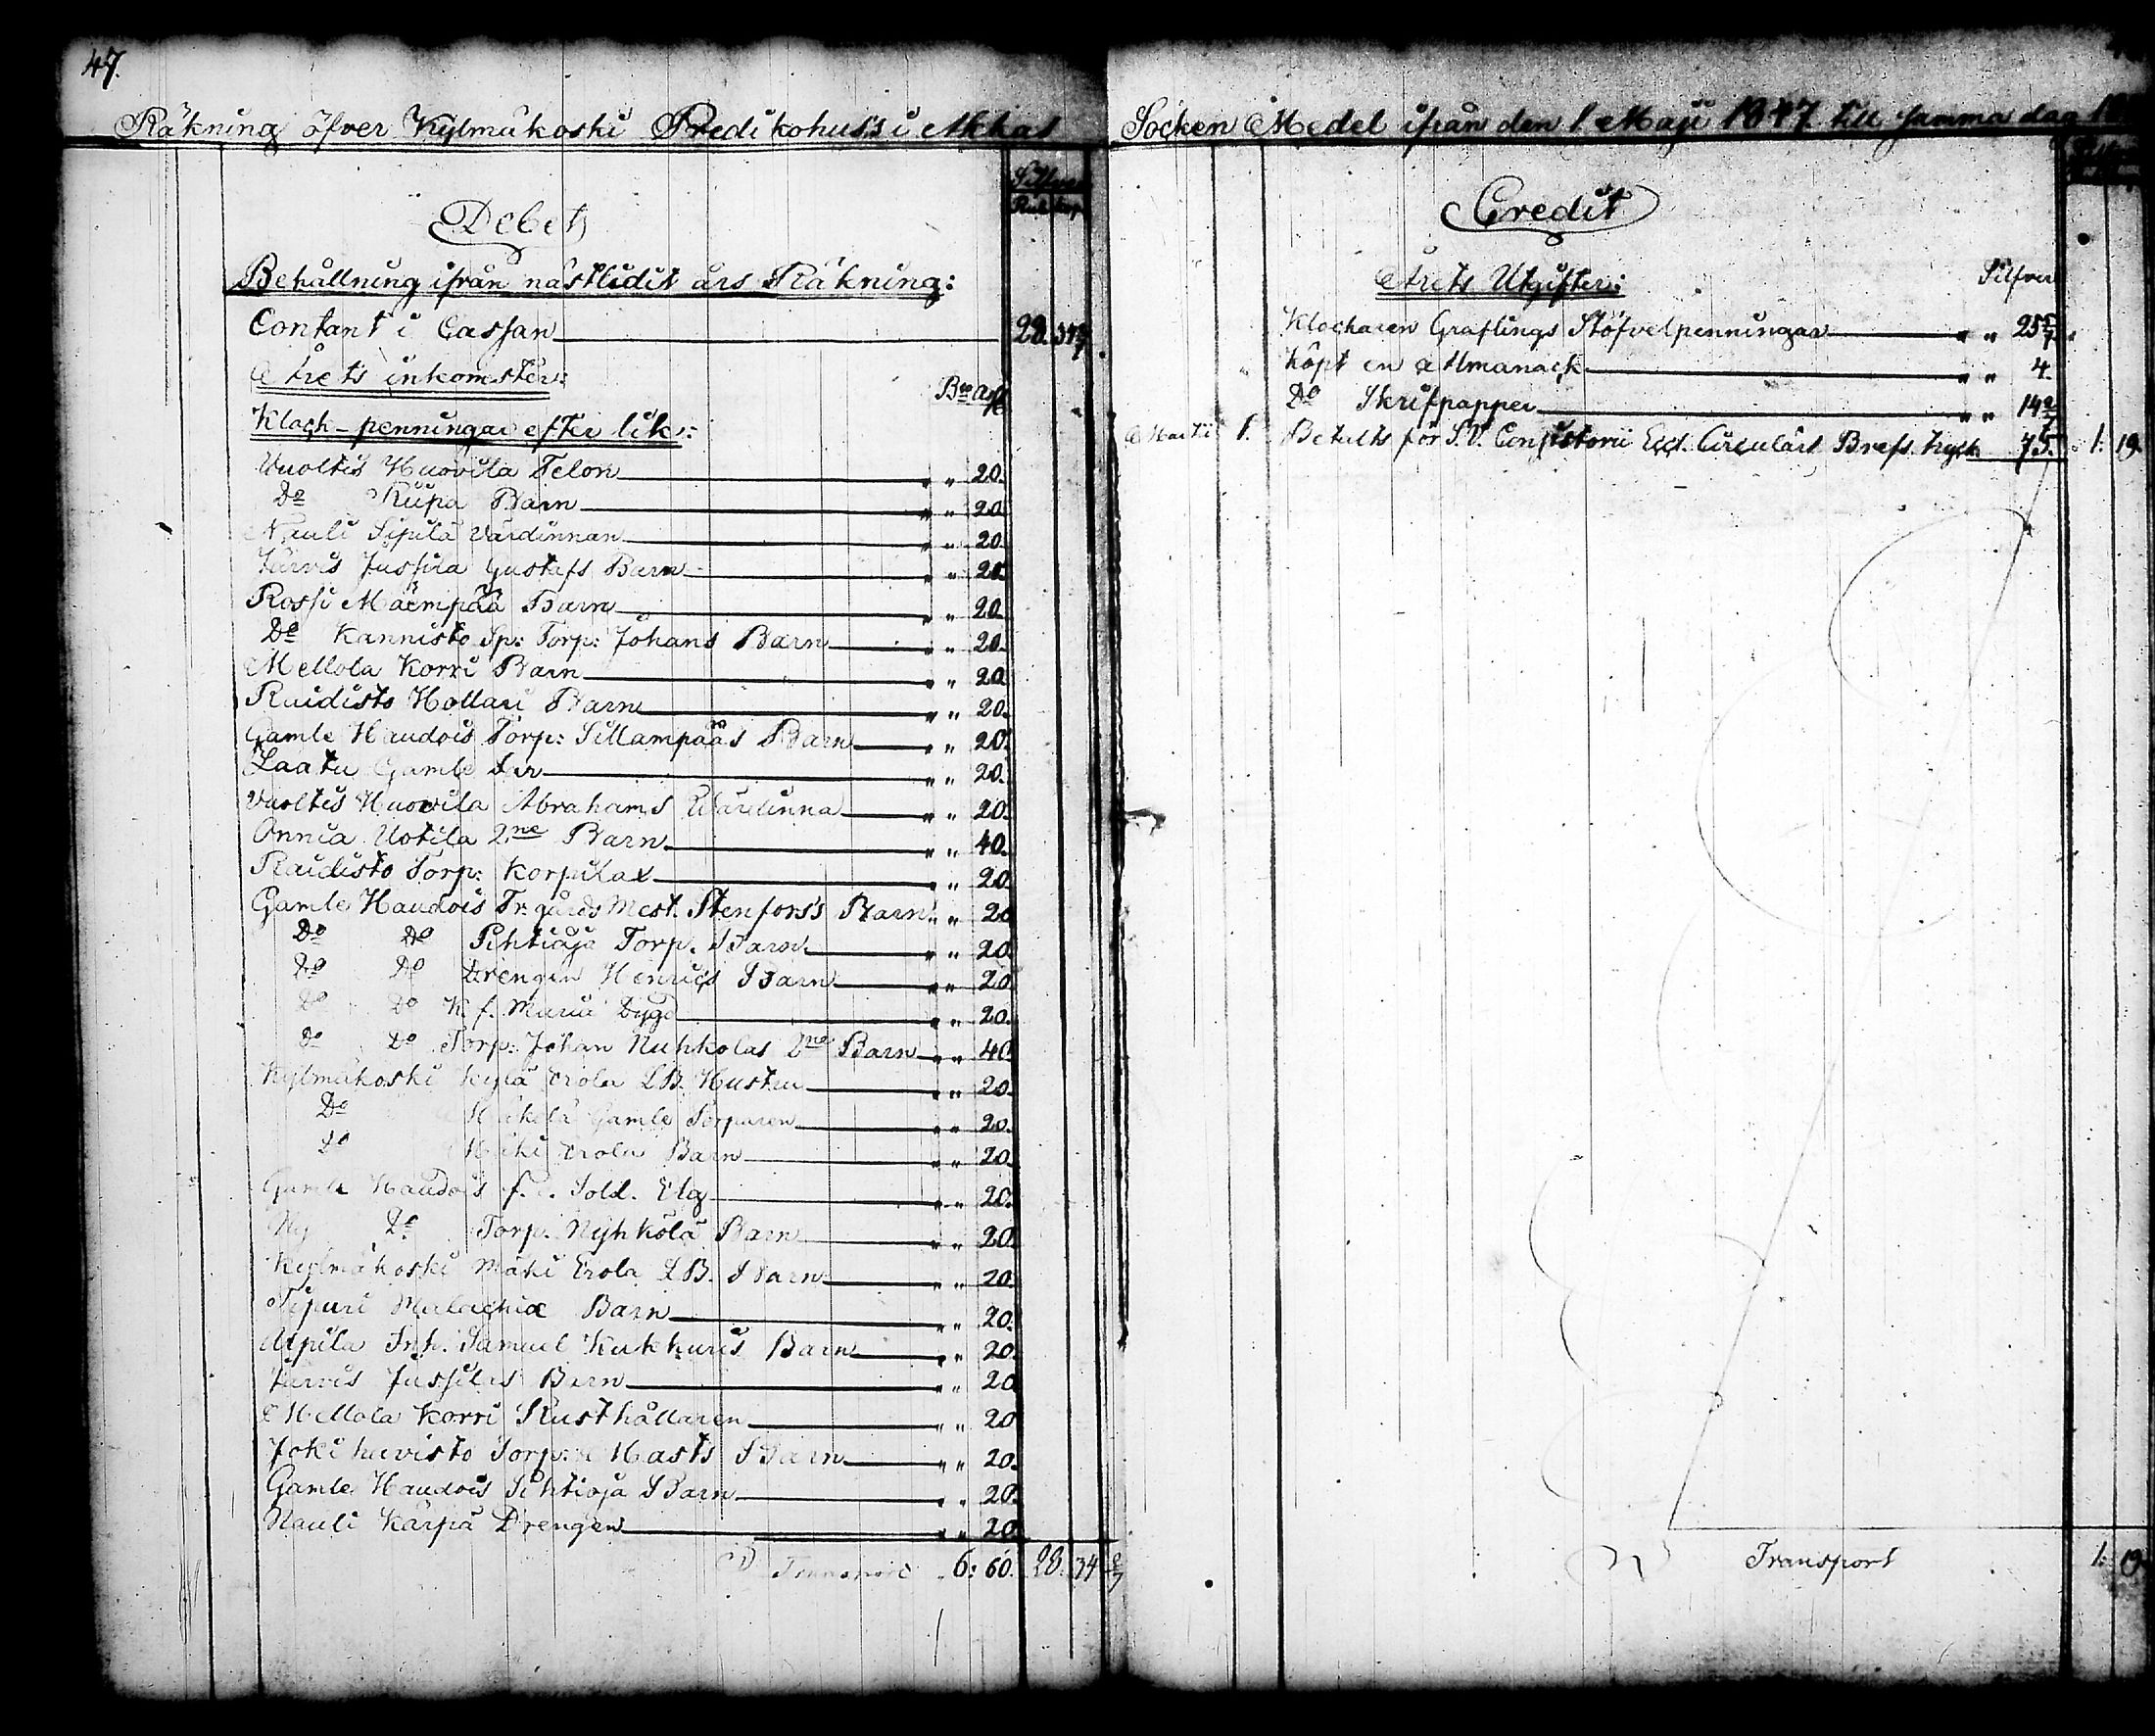 47.
Räkning öfver Kylmäkoski Predikohus's i Akkas
Silfver
Rub. Kop.
Debet
Behållning ifrån nästlidit års Räkning:
Contant i Cassan 28. 34 2/7
Årets inkomster:
Bco Ass
Klock-penningar efter lik:
Vuoltis Huovila Felon " " 20.
Do Rupa Barn " " 20
Nauli Sipilä Värdinnan " " 20
Järvis Jussila Gustafs Barn " " 20
Rossi Mäempää Barn " " 20
Do Kannisto Sp: Torp: Johans Barn " " 20
Mellola Korri Barn " " 20
Raidisto Hollari Barn " " 20.
Gamle Haudois Torp: Sillampääs Barn " " 20
Laatu Gamle " " 20.
Vuoltis Huovila Abrahams Wärdinna " " 20.
Annia Uotila 2ne Barn " " 40.
Raidisto Torp: Korpilax " " 20
Gamle Haudois Tr.gårds Mest. Stenfors's Barn " " 20
Do Do Pihtioja Torp. Barn " " 20
Do Do Drengen Henrics Barn " " 20
Do Do K. f. Maria Dygd " " 20.
Do Do Torp: Johan Nuhkolas 2ne Barn " " 40
Kylmäkoski Kylä Erola LB. Hustru " " 20.
Do Mäkelä Gamle Torparen " " 20.
Do Mäki Erola Barn " " 20.
Gamle Haudois f. d. Sold. Elg " " 20.
Ny Do Torp. Nyhkölä Barn " " 20.
Kylmäkoski Mäki Erola LB. Barn " " 20.
Sipuri Malachiæ Barn " " 20.
Alpila Inh. Samuel Kukkuris Barn " " 20.
Järvis Jussilas Barn " " 20
Mellola Korri Rusthållaren " " 20
Jokihavisto Torp: Masts Barn " " 20.
Gamle Haudois Pihtioja Barn " " 20.
Nauli Kärpä Drengen " " 20
Transport 6: 60. 28. 34 2/7
Socken Medel ifrån den 1 Maji 1847 till samma dag
Credit
Årets Utgifter: Silfver
Klockaren Graflings Stöfvelpenningar " " 25 5/7.
Köpt en Allmanack " " 4.
Do Skrifpapper " " 14 2/7
Martii 1. Betalts för S.V. Consistorii Eccl. Circulärs Brefs tryck 75. 1: 19.
Transport 1: 19.